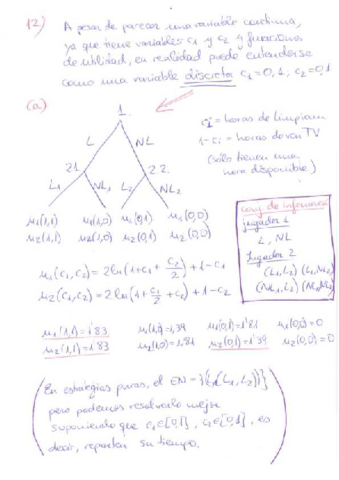 12) A pesar de parecer una variable continua,
ya que tiene variables c1 y c2 y funciones
de utilidad, en realidad puede entenderse
como una variable discreta c1=0,1; c2=0,1
(a)
1.
ci = horas de limpieza
1-ci = horas de ver TV
(sólo tienen una
hora disponible)
L NL
2.1 2.2.
L1 NL1 L2 NL2
u1(1,1) u1(1,0) u1(0,1) u1(0,0)
u2(1,1) u2(1,0) u2(0,1) u2(0,0)
conj. de información
Jugador 1
L, NL
Jugador 2
(L1,L2) (L1,NL2)
(NL1,L2) (NL1,NL2)
u1(c1,c2) = 2ln(1+c1+c2/2)+1-c1
u2(c1,c2) = 2ln(1+c1/2+c2)+1-c2
u1(1,1)=1'83 u1(1,0)=1,39 u1(0,1)=1'81 u1(0,0)=0
u2(1,1)=1'83 u2(1,0)=1,81 u2(0,1)=1'39 u2(0,0)=0
(En estrategias puras, el EN = {(L1,L2)}
pero podemos resolverlo mejor
suponiendo que c1∈[0,1], c2∈[0,1], es
decir, reparten su tiempo.)